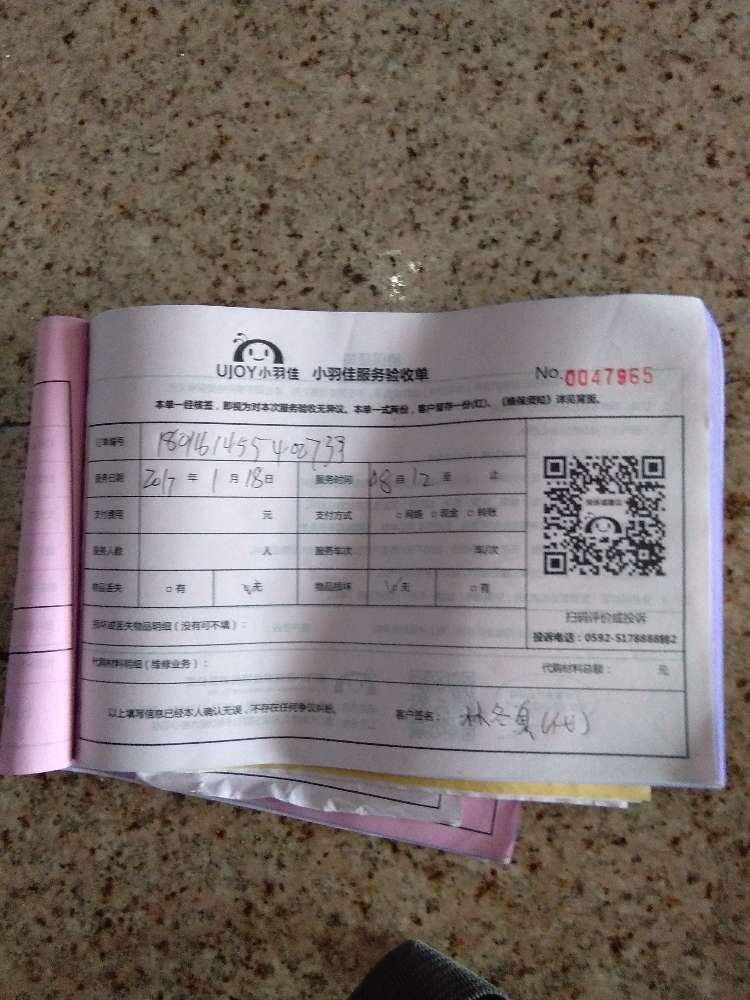 UJOY小羽佳 小羽佳服务验收单 No.0047965
本单一经核签，即视为对本次服务验收无异议。本单一式两份，客户留存一份(红)。《维保须知》详见背面。
订单编号 180161455402733
服务日期 2017年1月18日 服务时间 08自12至 止
支付费用 元 支付方式 □网络 □现金 □转账
服务人数 人 服务车次 车/次
物品丢失 □有 □无 物品损坏 □无 □有
扫码评价或投诉
损坏或丢失物品明细（没有可不填）：
投诉电话：0592-5178888转2
代购材料明细（维修业务）： 代购材料总额： 元
以上填写信息已经本人确认无误，不存在任何争议纠纷。 客户签名：林冬夏(代)